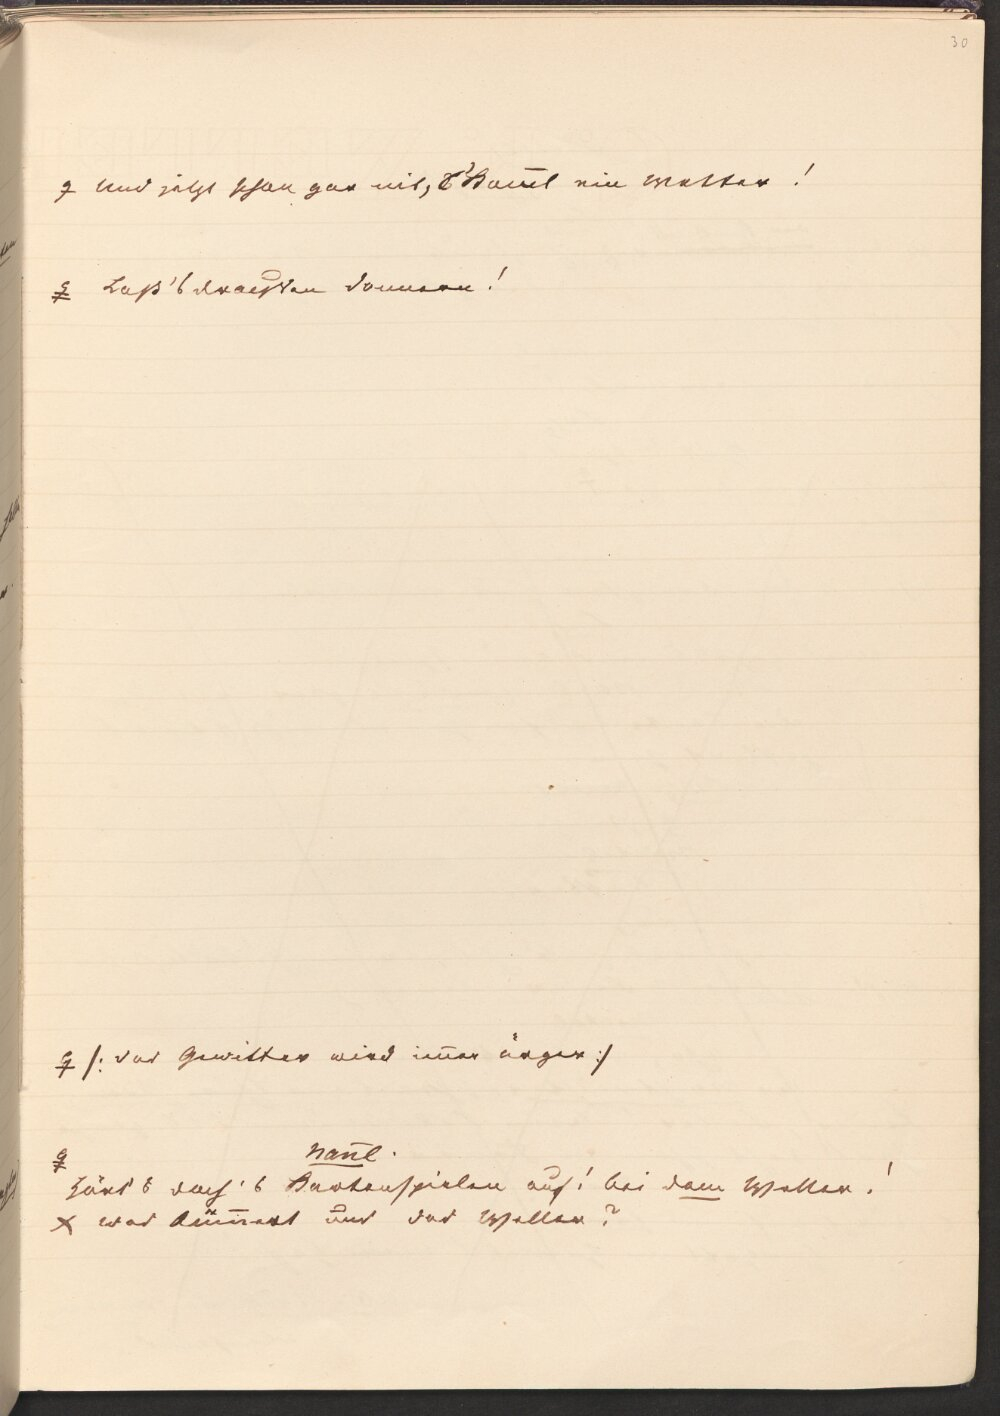 30
Und jetzt schon gar nit, 's kom̄t ein Wetter!
Laß's draußen donnern!
/: das Gewitter wird im̄er ärger :/
Nan̄l.
Hört's doch 's Kartenspielen auf! bei dem Wetter!
x was küm̄ert uns das Wetter?